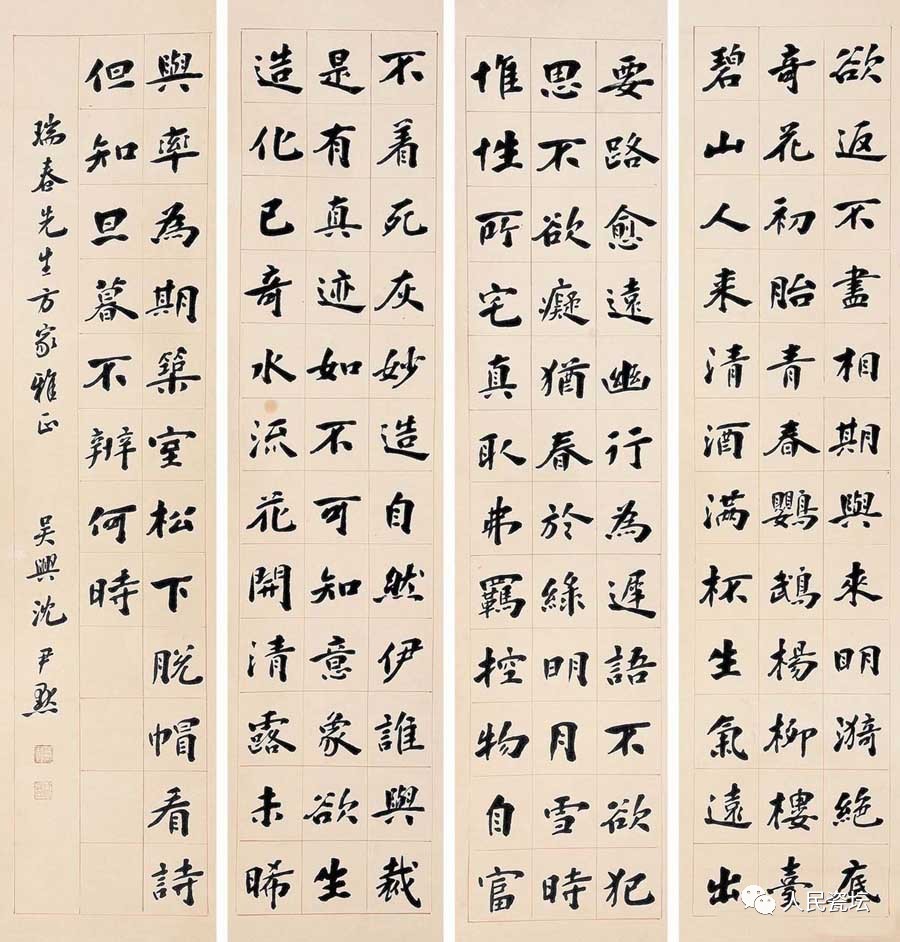 欲返不盡相期與來明漪絕底
奇花初胎青春鸚鵡楊柳樓臺
碧山人來清酒滿杯生氣遠出
不着死灰妙造自然伊誰與裁
是有真迹如不可知意象欲生
造化已奇水流花開清露未晞
要路愈遠幽行為遲語不欲犯
思不欲癡猶春於綠明月雪時
惟性所宅真取弗羈控物自富
與率為期築室松下脫帽看詩
但知旦暮不辨何時
瑞春先生方家雅正 吳興沈尹默
人民瓷坛